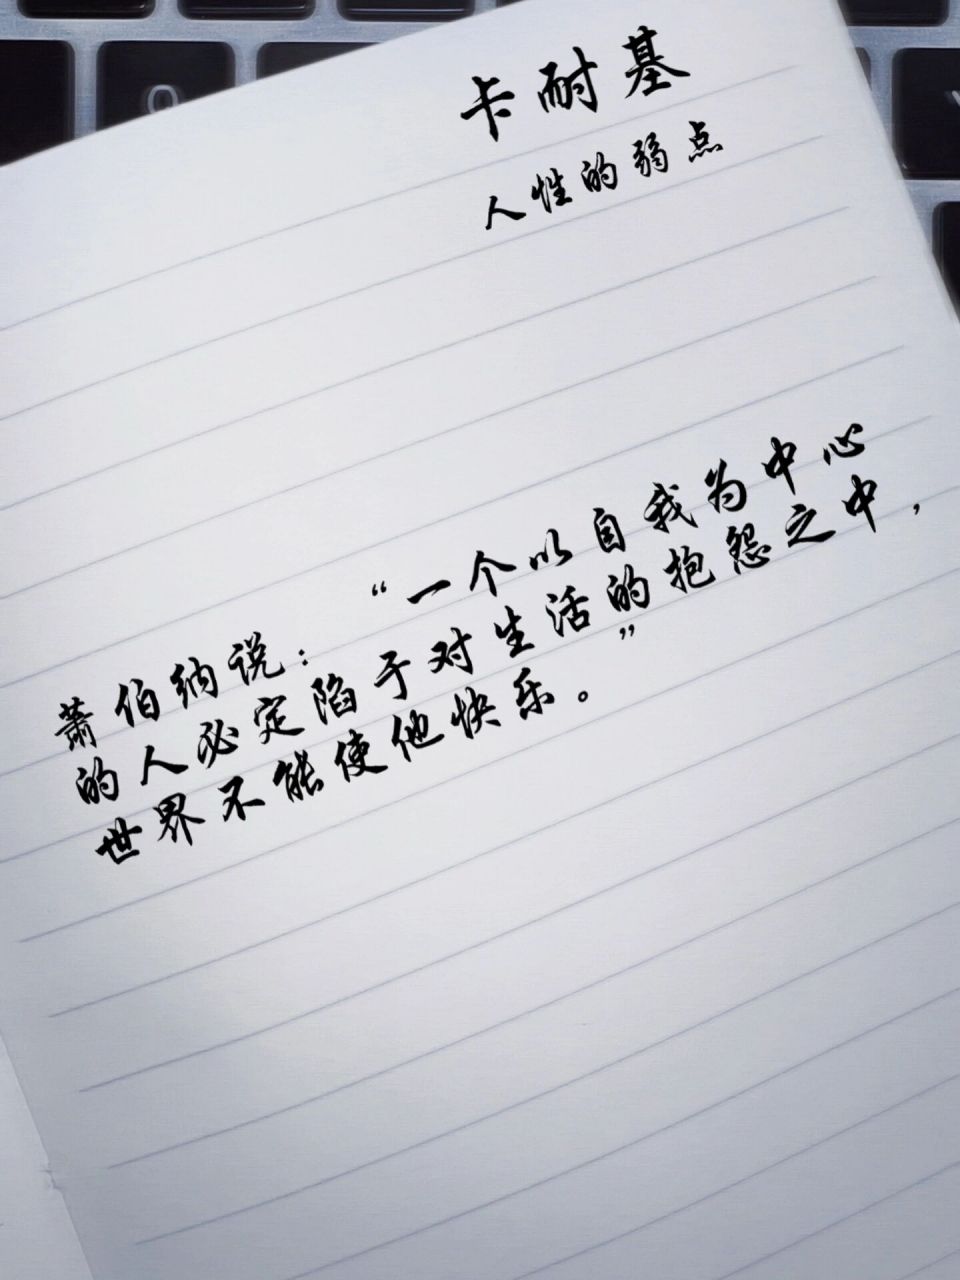 卡耐基
人性的弱点
萧伯纳说：“一个以自我为中心
的人必定陷于对生活的抱怨之中，
世界不能使他快乐。”